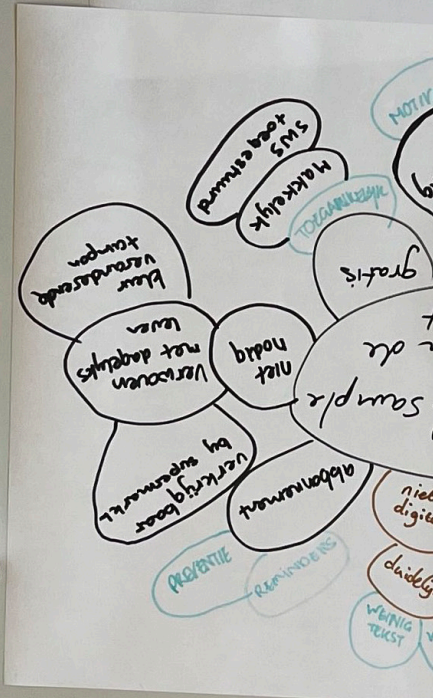 MOTIV
SMS
toegestuurd
Makkelijk
TOEGANKELIJK
gratis
kleur
veranderende
tampon
verwoven
met dagelijks
leven
niet
nodig
sample
de
verkrijgbaar
bij supermarkt
abbonement
PREVENTIE
REMINDERS
niet
digit
duidelij
WEINIG
TEKST